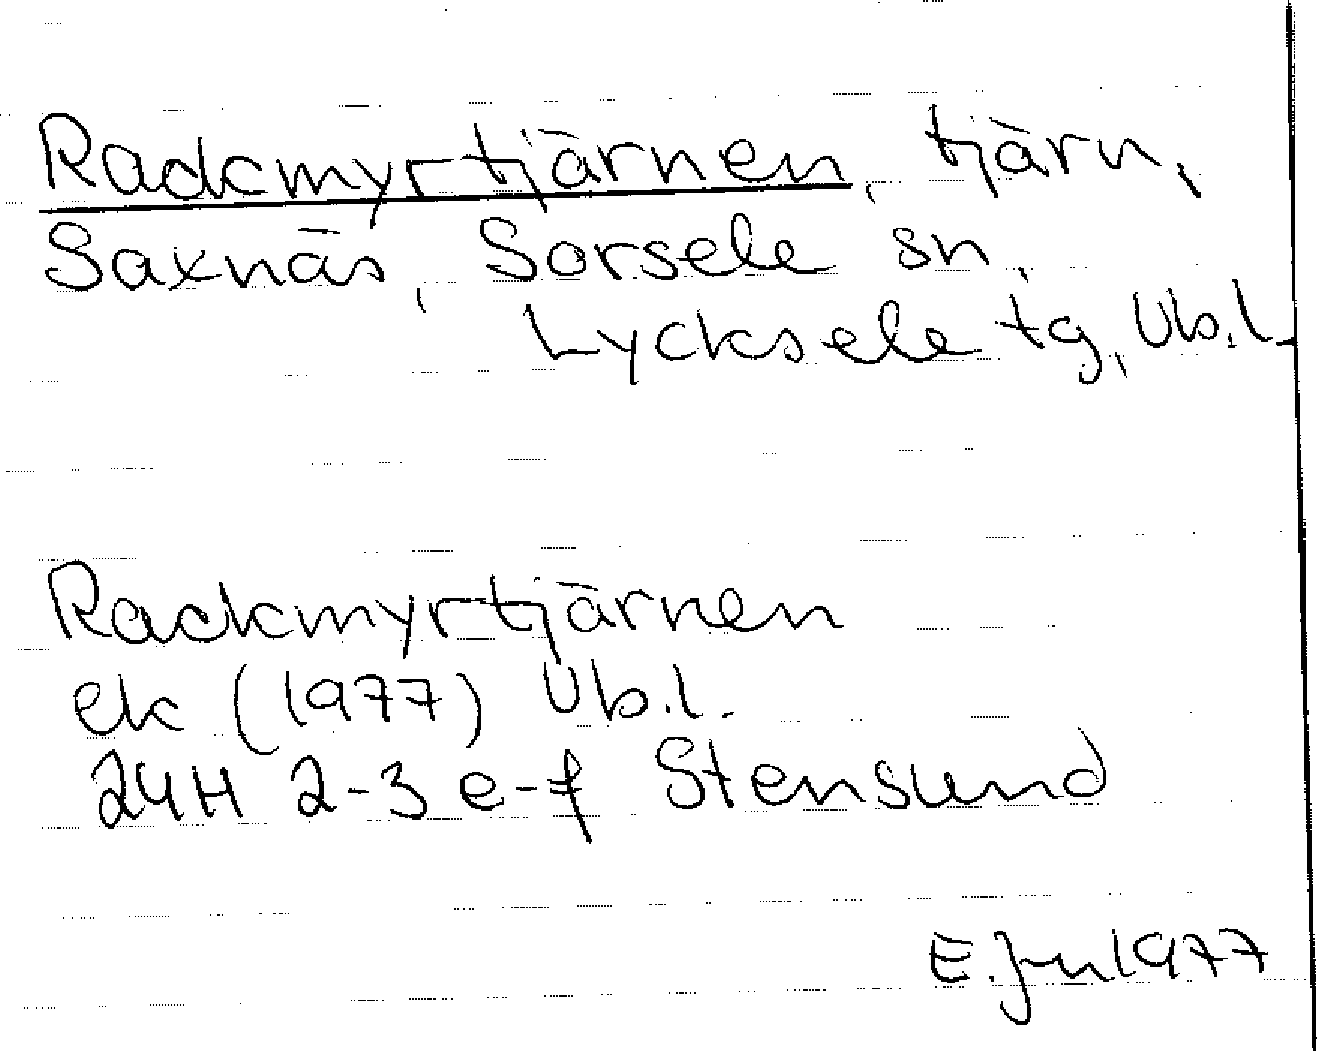 Rackmyrtjärnen, tjärn,
Saxnäs, Sorsele sn,
Lycksele tg, Vb.l.
Rackmyrtjärnen
ek (1977) Vb.l.
24H 2-3 e-f Stensund
E. Jn 1977